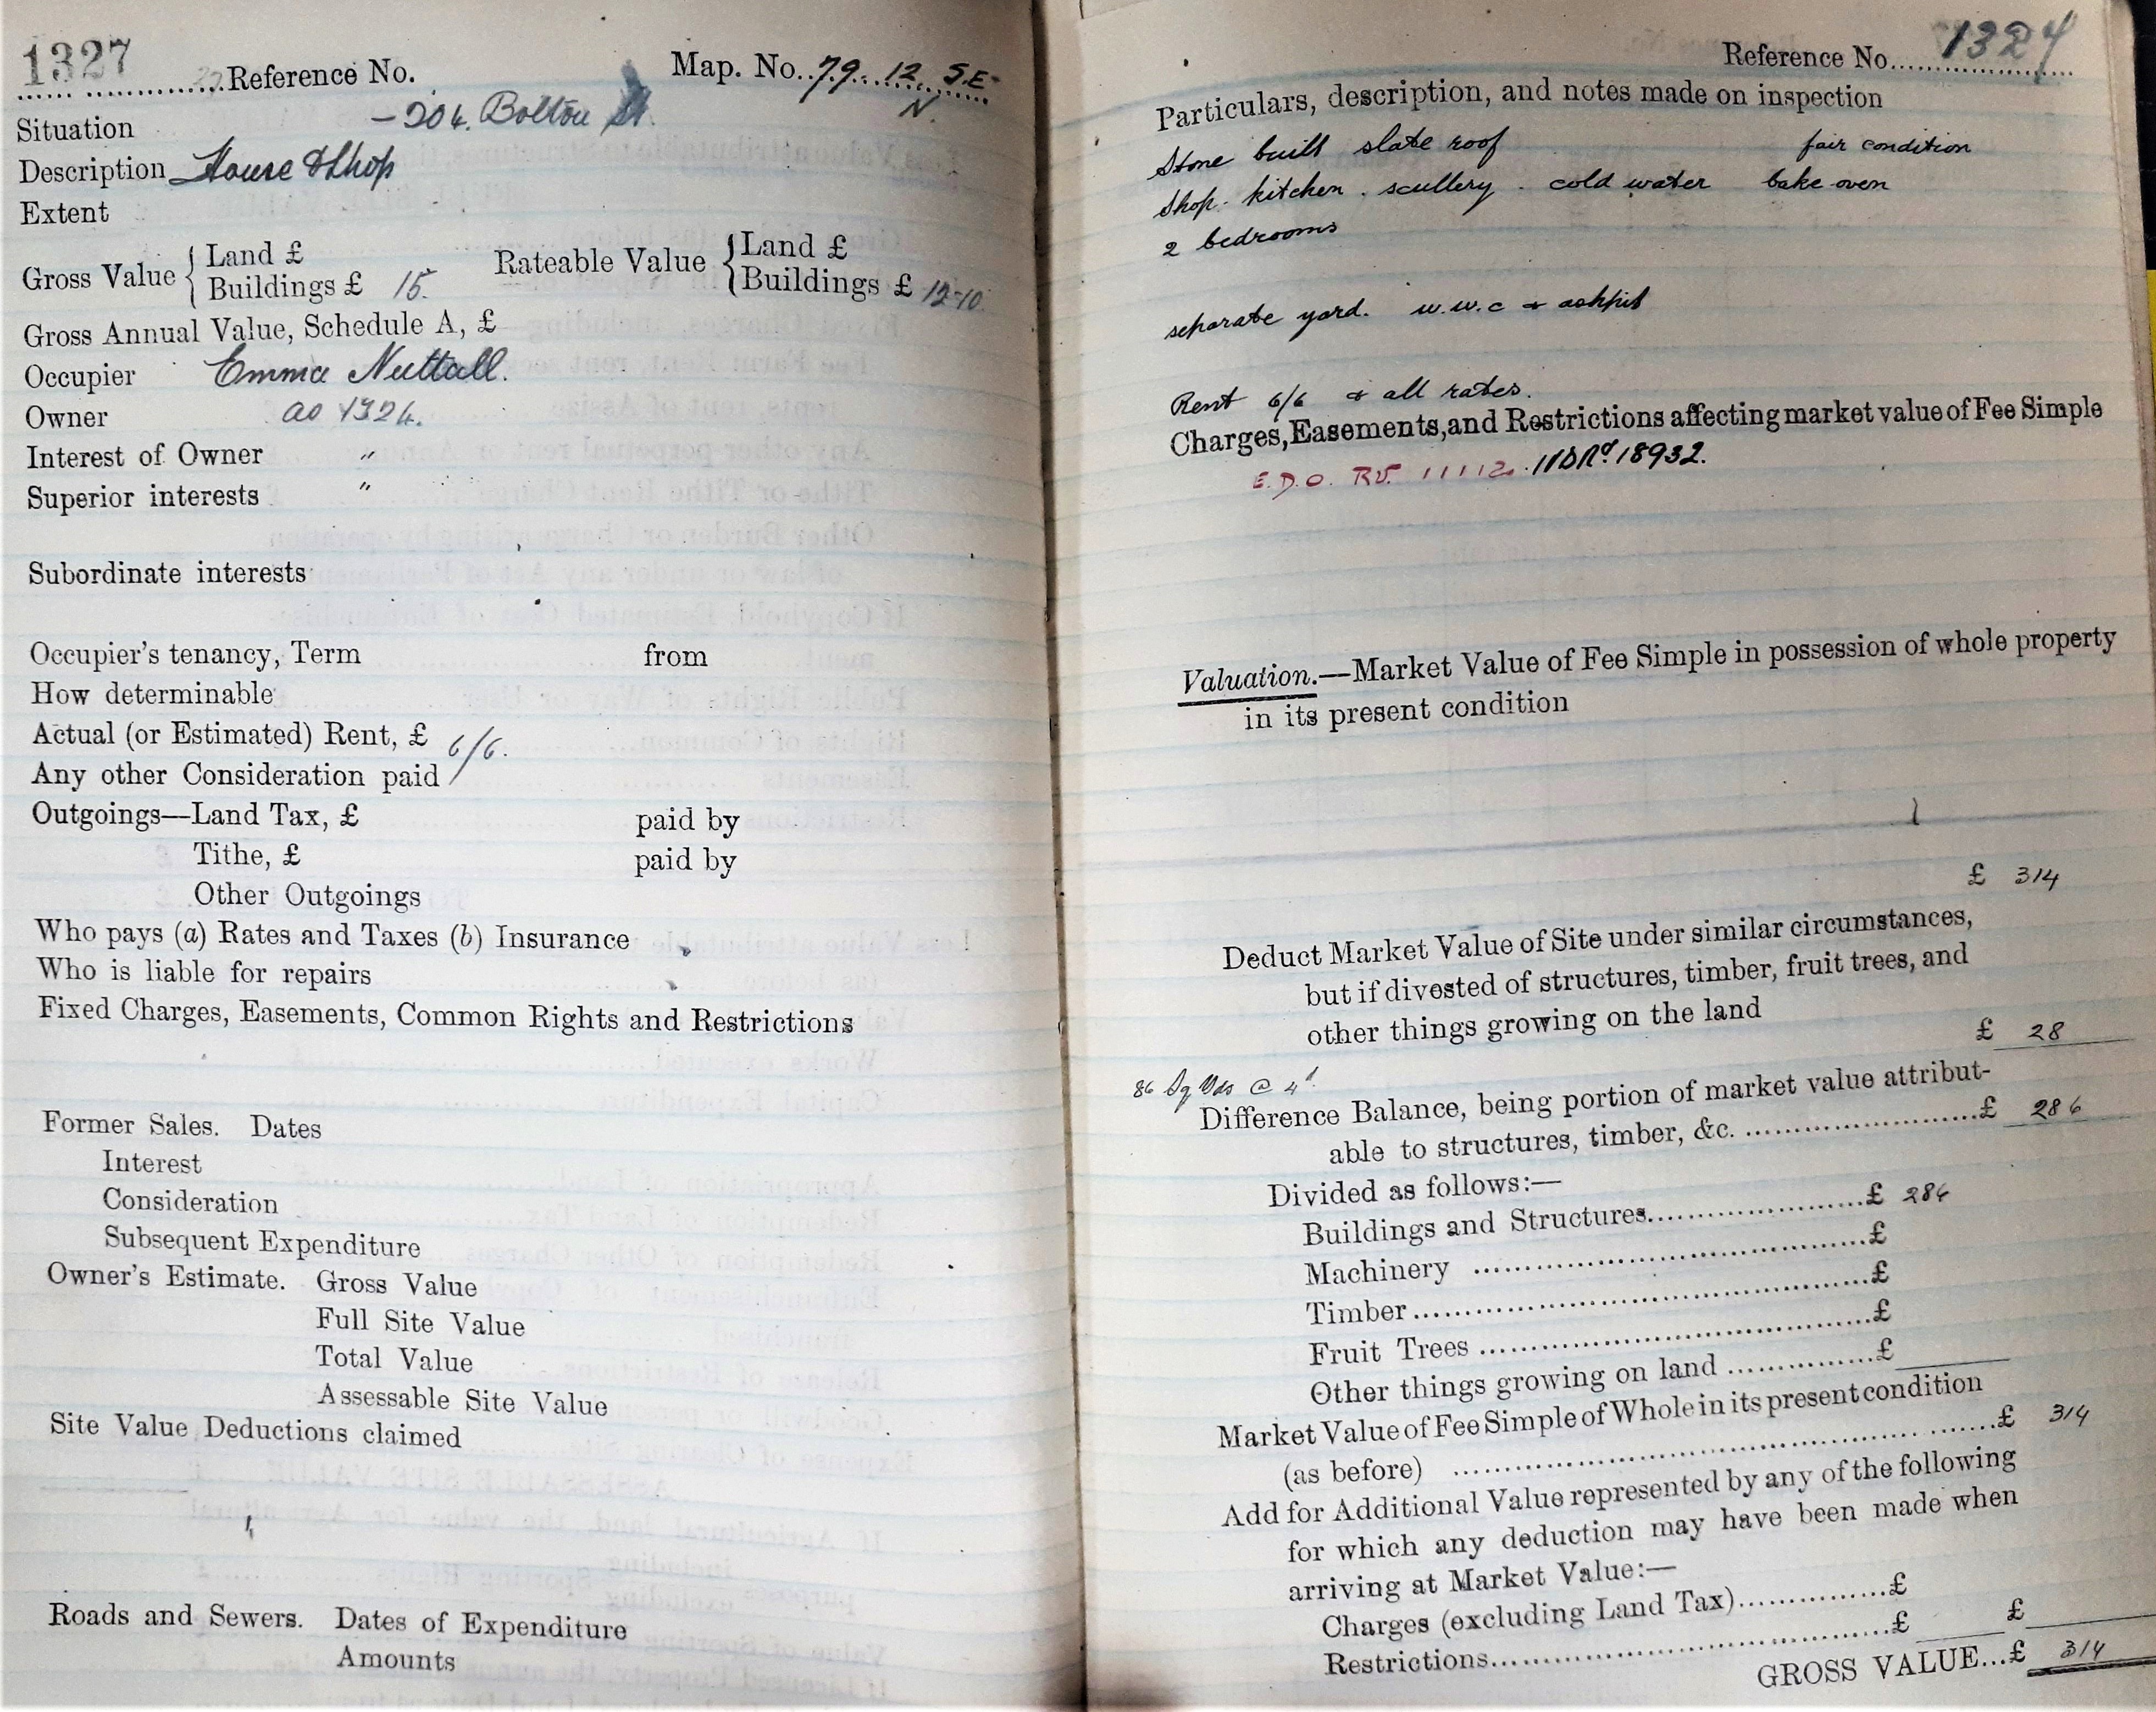 1327 Reference No. Map. No. 79. 12 S.E.
N.
Situation - 204. Bolton St.
Description House & Shop
Extent
Gross Value { Land £ Rateable Value { Land £
Buildings £ 15. Buildings £ 12-10
Gross Annual Value, Schedule A, £
Occupier Emma Nuttall.
Owner as 1324.
Interest of Owner "
Superior interests "
Subordinate interests
Occupier's tenancy, Term from
How determinable
Actual (or Estimated) Rent, £ 6/6.
Any other Consideration paid
Outgoings—Land Tax, £ paid by
Tithe, £ paid by
Other Outgoings
Who pays (a) Rates and Taxes (b) Insurance
Who is liable for repairs
Fixed Charges, Easements, Common Rights and Restrictions
Former Sales. Dates
Interest
Consideration
Subsequent Expenditure
Owner's Estimate. Gross Value
Full Site Value
Total Value
Assessable Site Value
Site Value Deductions claimed
Roads and Sewers. Dates of Expenditure
Amounts
Reference No. 1327
Particulars, description, and notes made on inspection
Stone built slate roof fair condition
Shop. kitchen. scullery. cold water bake oven
2 bedrooms
separate yard. w.w.c & ashpit
Rent 6/6 & all rates.
Charges, Easements, and Restrictions affecting market value of Fee Simple
E.D.O. RV. 11112. 18932.
Valuation.—Market Value of Fee Simple in possession of whole property
in its present condition
£ 314
Deduct Market Value of Site under similar circumstances,
but if divested of structures, timber, fruit trees, and
other things growing on the land
£ 28
86 Sq Yds @ 4d
Difference Balance, being portion of market value attribut-
able to structures, timber, &c. ........................£ 286
Divided as follows:—
Buildings and Structures........................£ 286
Machinery ........................£
Timber........................£
Fruit Trees ........................£
Other things growing on land ...............£
Market Value of Fee Simple of Whole in its present condition
(as before) ........................£ 314
Add for Additional Value represented by any of the following
for which any deduction may have been made when
arriving at Market Value:—
Charges (excluding Land Tax)...............£
Restrictions........................£ £
GROSS VALUE...£ 314